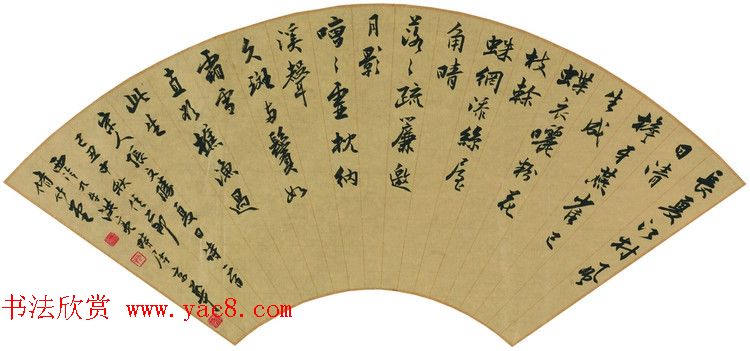 長夏江村風
日清
簷牙燕雀已
生成
蝶衣曬粉花
枝
蛛網添絲屋
角晴
落〻疏簾邀
月影
〻虛枕納
溪聲
久斑兩鬢如
霜雪
直欲樵漁過
此生
宋人張文潛夏日詩一首
己丑中秋
书法欣赏 www.yac8.com